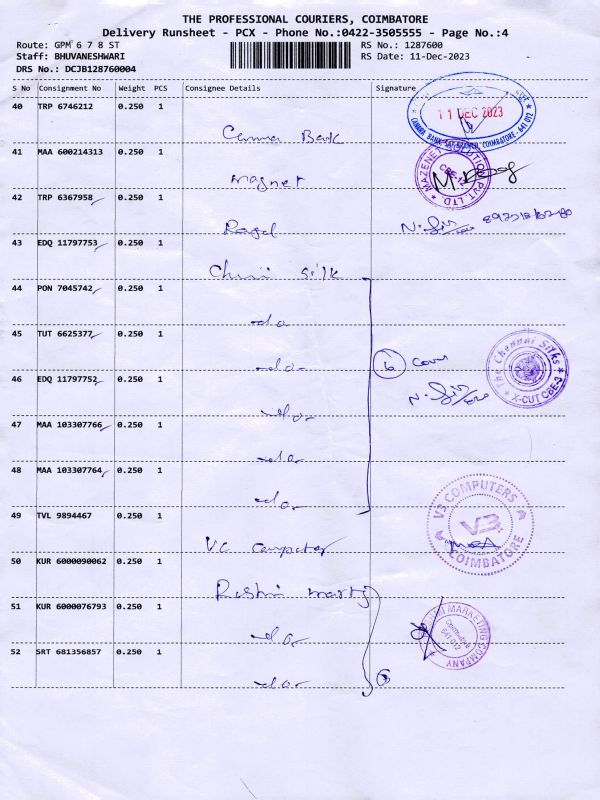 THE PROFESSIONAL COURIERS, COIMBATORE
Delivery Runsheet - PCX - Phone No.:0422-3505555 - Page No.:4
Route: GPM 6 7 8 ST RS No.: 1287600
Staff: BHUVANESHWARI RS Date: 11-Dec-2023
DRS No.: DCJB128760004
S No Consignment No Weight PCS Consignee Details Signature
40 TRP 6746212 0.250 1
11 DEC 2023
Canara Bank
41 MAA 600214313 0.250 1
Magnet
42 TRP 6367958 0.250 1
43 EDQ 11797753 0.250 1
Silk
44 PON 7045742 0.250 1
do
45 TUT 6625377 0.250 1
The Chennai Silks
X-CUT CBE-3
do
6 Cover
46 EDQ 11797752 0.250 1
do
47 MAA 103307766 0.250 1
do
48 MAA 103307764 0.250 1
do
49 TVL 9894467 0.250 1
V3 COMPUTERS
V3
COIMBATORE
VC Computer
50 KUR 6000090062 0.250 1
51 KUR 6000076793 0.250 1
MARKETING COMPANY
Coimbatore
641 012
do
52 SRT 681356857 0.250 1
do